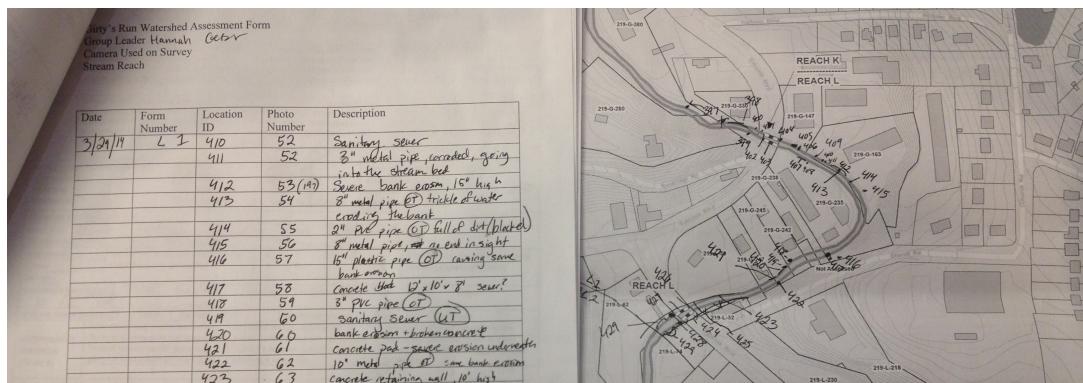 irty's Run Watershed Assessment Form
Group Leader Hannah
Camera Used on Survey
Stream Reach
Date Form Number Location ID Photo Number Description
3/29/14 L 1 410 52 Sanitary sewer
411 52 3" metal pipe, corroded, going
into the stream bed
412 53 (197) Severe bank erosion, 15" high
413 54 8" metal pipe (OT) trickle of water
eroding the bank
414 55 2" PVC pipe (OT) full of dirt (blocked)
415 56 8" metal pipe, no end in sight
416 57 15" plastic pipe (OT) causing some
bank erosion
417 58 concrete 12' x 10' x 8' sewer?
418 59 3" PVC pipe (OT)
419 60 sanitary sewer (UT)
420 60 bank erosion + broken concrete
421 61 concrete pad - severe erosion underneath
422 62 10" metal pipe OT some bank erosion
423 63 concrete retaining wall, 10' high
219-G-380
REACH K
REACH L
219-G-280
397
219-G-330
398
219-G-147
399
404
405
406
409
402
403
407
219-G-163
412
414
413
415
219-G-238
219-G-235
219-G-245
219-G-242
416
420
429
426
REACH L
422
219-L-62
219-L-32
423
424
425
428
429
429
219-L-218
219-L-230